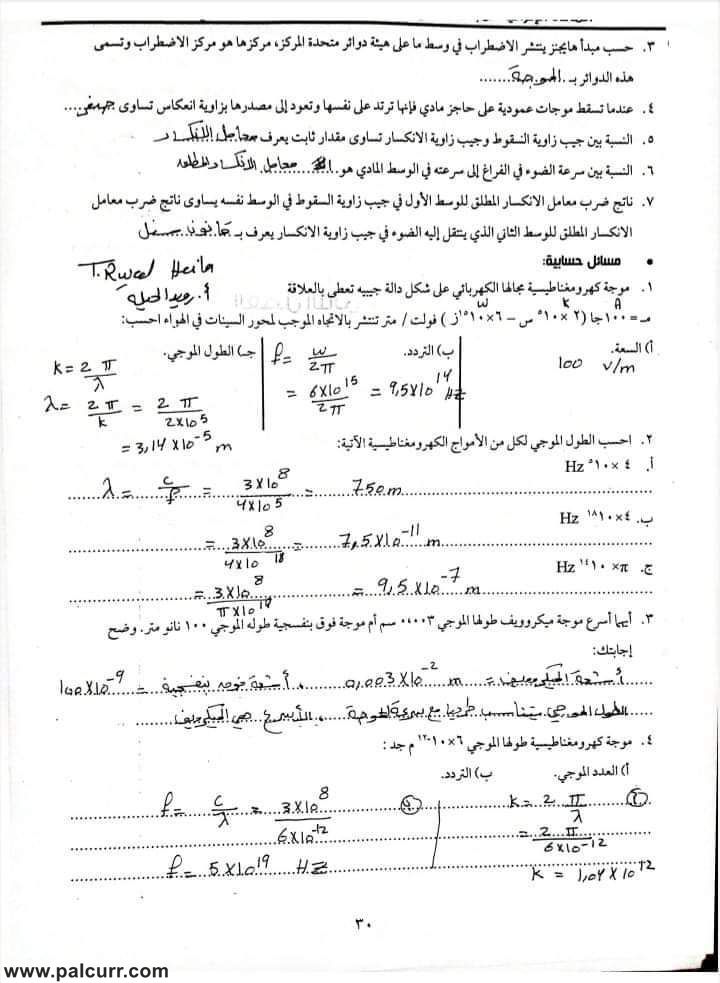 ٣. حسب مبدأ هايجنز ينتشر الاضطراب في وسط ما على هيئة دوائر متحدة المركز، مركزها هو مركز الاضطراب وتسمى
هذه الدوائر بـ الموجة.......
٤. عندما تسقط موجات عمودية على حاجز مادي فإنها ترتد على نفسها وتعود إلى مصدرها بزاوية انعكاس تساوى صفر...
٥. النسبة بين جيب زاوية السقوط وجيب زاوية الانكسار تساوى مقدار ثابت يعرف معامل الانكسار
٦. النسبة بين سرعة الضوء في الفراغ إلى سرعته في الوسط المادي هو معامل الانكسار المطلق
٧. ناتج ضرب معامل الانكسار المطلق للوسط الأول في جيب زاوية السقوط في الوسط نفسه يساوى ناتج ضرب معامل
الانكسار المطلق للوسط الثاني الذي ينتقل إليه الضوء في جيب زاوية الانكسار يعرف بـ قانون سنل
T. Rwed Heila
• مسائل حسابية:
١. موجة كهرومغناطيسية مجالها الكهربائي على شكل دالة جيبيه تعطى بالعلاقة
A k w
مـ = ١٠٠ جا (٢ × ١٠^٥ س – ٦ × ١٠^١٥ ز) فولت / متر تنتشر بالاتجاه الموجب لمحور السينات في الهواء احسب:
أ) السعة. ب) التردد. جـ) الطول الموجي.
100 v/m
f = w/2π
= 6x10^15/2π = 9,5x10^14 Hz
k = 2π/λ
λ = 2π/k = 2π/2x10^5
= 3,14x10^-5 m
٢. احسب الطول الموجي لكل من الأمواج الكهرومغناطيسية الآتية:
أ. ٤ × ١٠^٥ Hz
λ = c/f = 3x10^8/4x10^5 = 750m
ب. ٤×١٠^١٨ Hz
= 3x10^8/4x10^18 = 7,5x10^-11 m
ج. π× ١٠^١٤ Hz
= 3x10^8/πx10^14 = 9,5x10^-7 m
٣. أيهما أسرع موجة ميكروويف طولها الموجي ٠٠٠٠٣ سم أم موجة فوق بنفسجية طوله الموجي ١٠٠ نانو متر. وضح
إجابتك:
أشعة الميكروويف = 0,003x10^-2 m ، أشعة فوق بنفسجية = 100x10^-9
الطول الموجي متناسب طرديا مع سرعة الموجة ، الأسرع هي الميكرويف
٤. موجة كهرومغناطيسية طولها الموجي ٦×١٠^-١٢ م جد:
أ) العدد الموجي. ب) التردد.
أ k = 2π/λ
= 2π/6x10^-12
k = 1,04x10^12
ب f = c/λ = 3x10^8/6x10^-12
f = 5x10^19 Hz
٣٠
www.palcurr.com